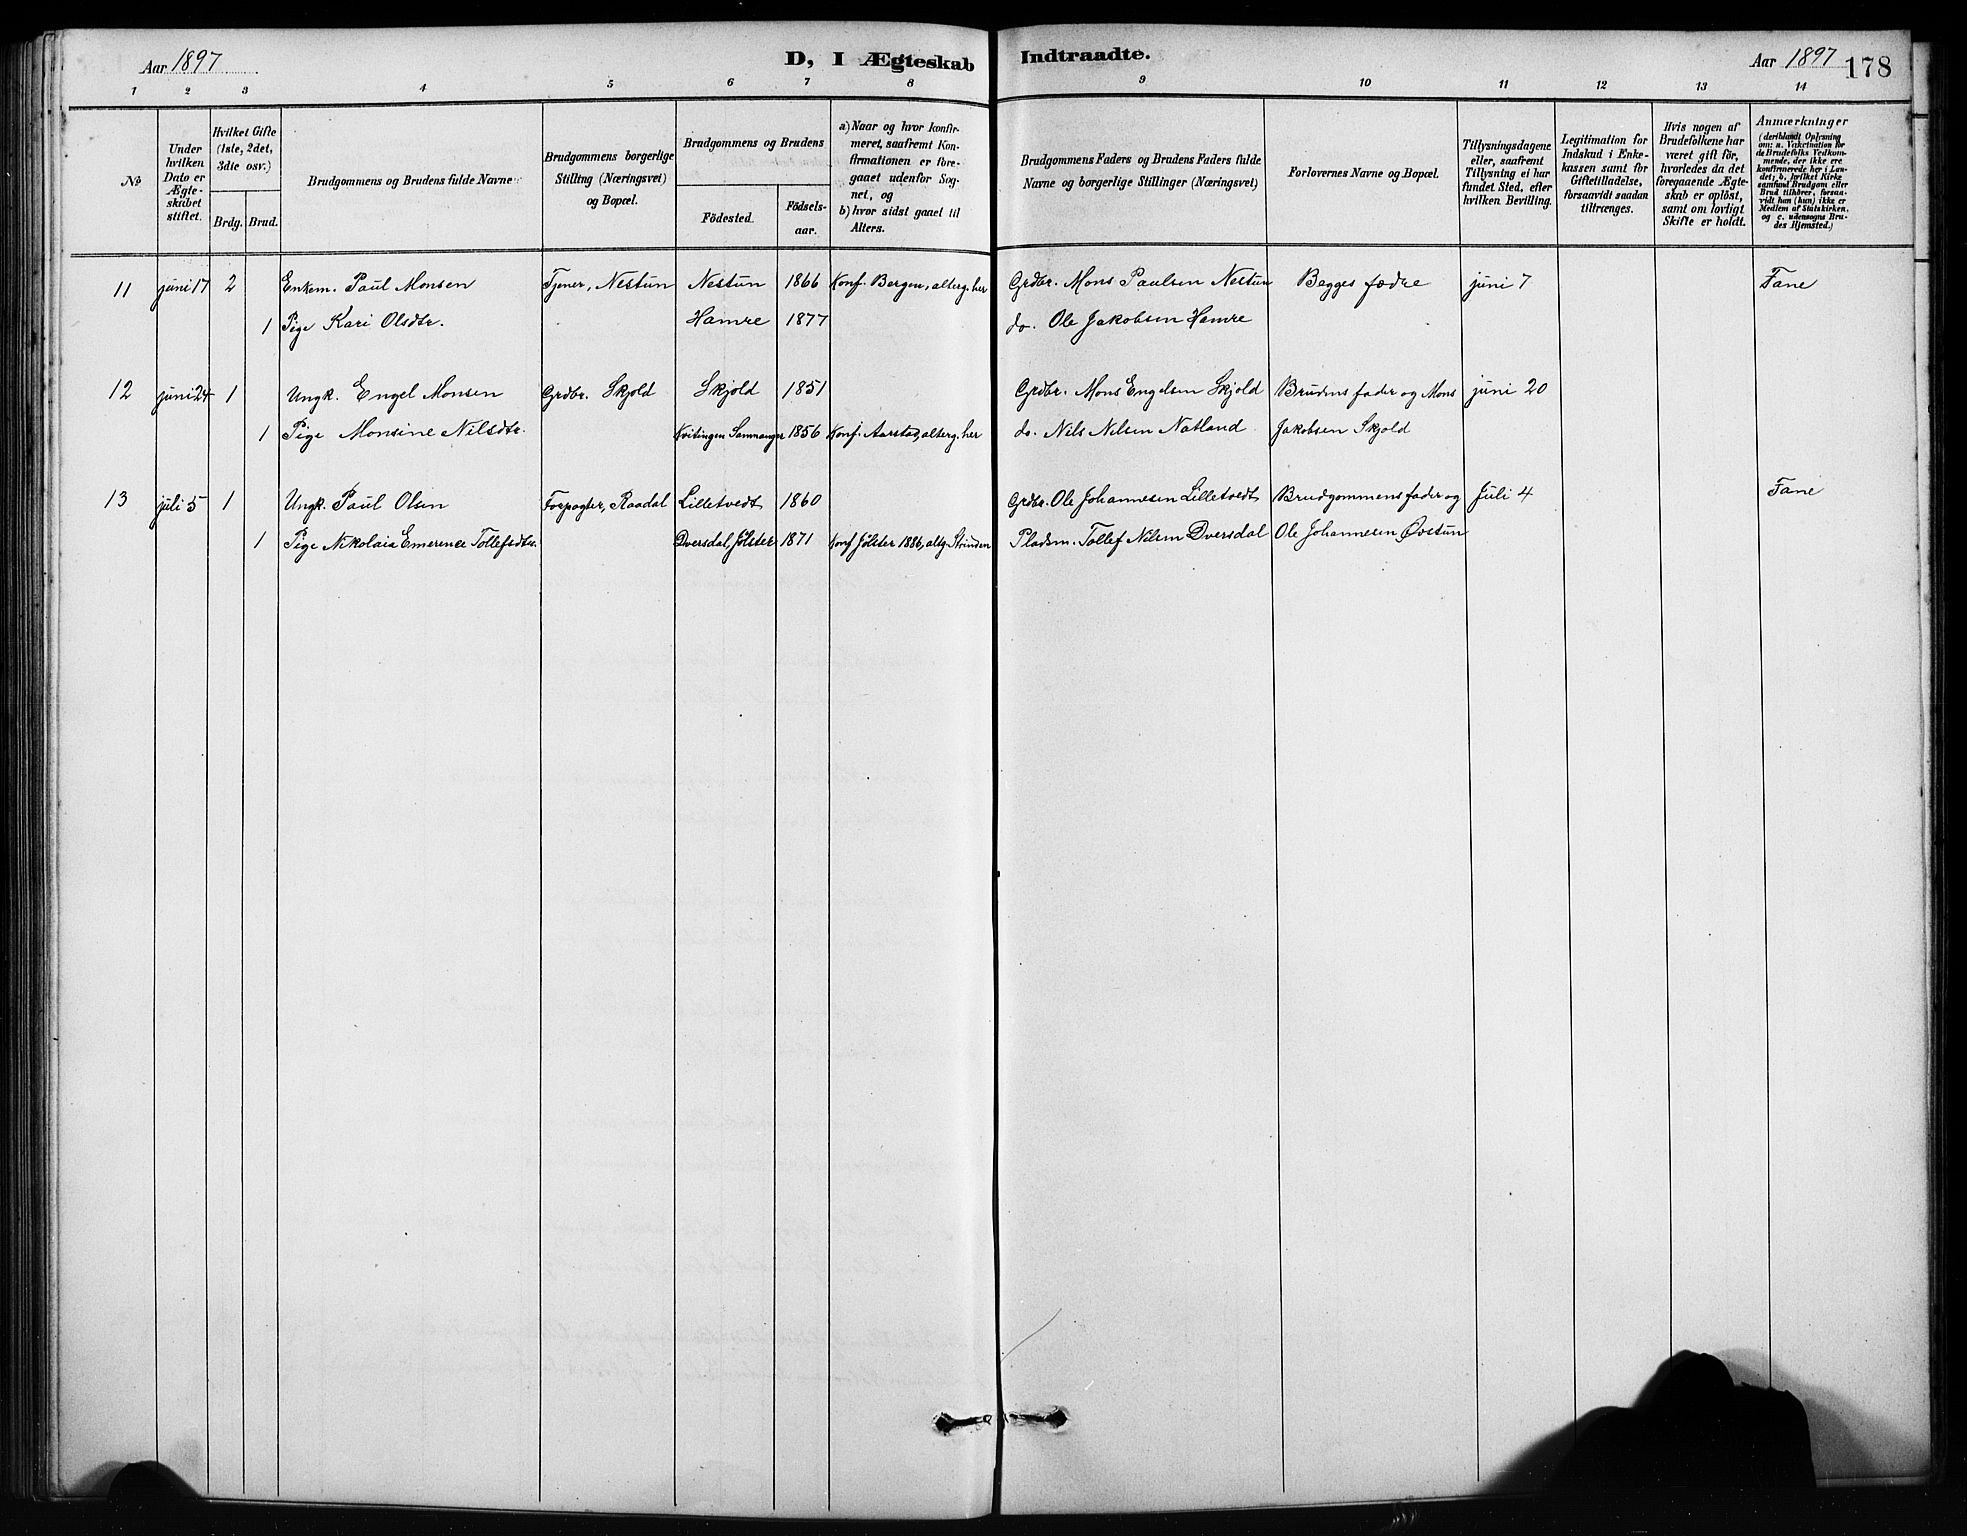 Aar 1897
D, I Ægteskab Indtraadte.
Aar 1897
178
1 2 3 4 5 6 7 8 9 10 11 12 13 14
№
Under hvilken Dato er Ægte-skabet stiftet.
Hvilket Gifte (1ste, 2det, 3die osv.)
Brdg. Brud.
Brudgommens og Brudens fulde Navne
Brudgommens borgerlige Stilling (Næringsvei) og Bopæl.
Brudgommens og Brudens
Födested.
Födsels-aar.
a) Naar og hvor konfir-meret, saafremt Kon-firmationen er fore-gaaet udenfor Sog-net, og
b) hvor sidst gaaet til Alters.
Brudgommens Faders og Brudens Faders fulde Navne og borgerlige Stillinger (Næringsvei)
Forlovernes Navne og Bopæl.
Tillysningsdagene eller, saafremt Tillysning ei har fundet Sted, efter hvilken Bevilling.
Legitimation for Indskud i Enke-kassen samt for Giftetilladelse, forsaavidt saadan tiltrænges.
Hvis nogen af Brudefolkene har været gift för, hvorledes da det foregaaende Ægte-skab er oplöst, samt om lovligt Skifte er holdt.
Anmærkninger
(deriblandt Oplysning om: a. Vakcination for de Brudefolks Vedkom-mende, der ikke ere konfirmerede her i Lan-det; b. hvilket Kirke samfund Brudgom eller Brud tilhörer, forsaa-vidt han (hun) ikke er Medlem af Statskirken. og c. udensogns Bru-des Hjemsted.)
11 juni 17 2 Enkem. Paul Monsen Tjener, Nestun Nestun 1866 Konf. Bergen, alterg. her Grdbr. Mons Paulsen Nestun Begges fædre juni 7 Fane
1 Pige Kari Olsdtr. Hamre 1877 do. Ole Jakobsen Hamre
12 juni 24 1 Ungk. Engel Monsen Grdbr. Skjold Skjold 1851 Grdbr. Mons Engelsen Skjold Brudens fader og Mons juni 20
1 Pige Monsine Nilsdtr. Kvitingen Samnanger 1856 Konf. Aarstad, alterg. her do. Nils Nilsen Natland Jakobsen Skjold
13 juli 5 1 Ungk. Paul Olsen Forpagter, Raadal Lilletvedt 1860 Grdbr. Ole Johannesen Lilletvedt Brudgommens fader og Juli 4 Fane
1 Pige Nikolaia Emerence Tollefsdtr. Dversdal, Jølster 1871 Konf Jølster 1886, altg. Strinden Pladsm. Tollef Nilsen Dversdal Ole Johannesen Øvstun